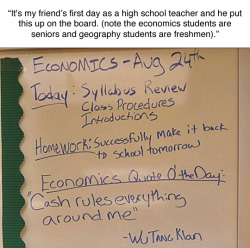 “It's my friend's first day as a high school teacher and he put
this up on the board. (note the economics students are
seniors and geography students are freshmen).”
Economics - Aug 24th
Today: Syllabus Review
Class Procedures
Introductions
Homework: Successfully make it back
to school tomorrow
Economics Quote O' the Day:
"Cash rules everything
around me"
-Wu Tang Klan